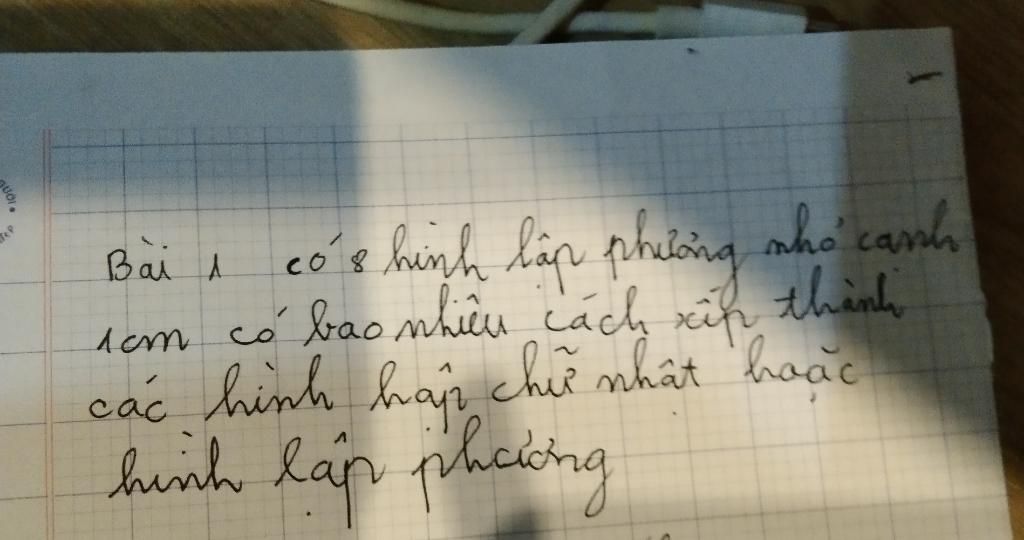 Bài 1 có 8 hình lập phương nhỏ cạnh
1cm có bao nhiêu cách xếp thành
các hình hộp chữ nhật hoặc
hình lập phương